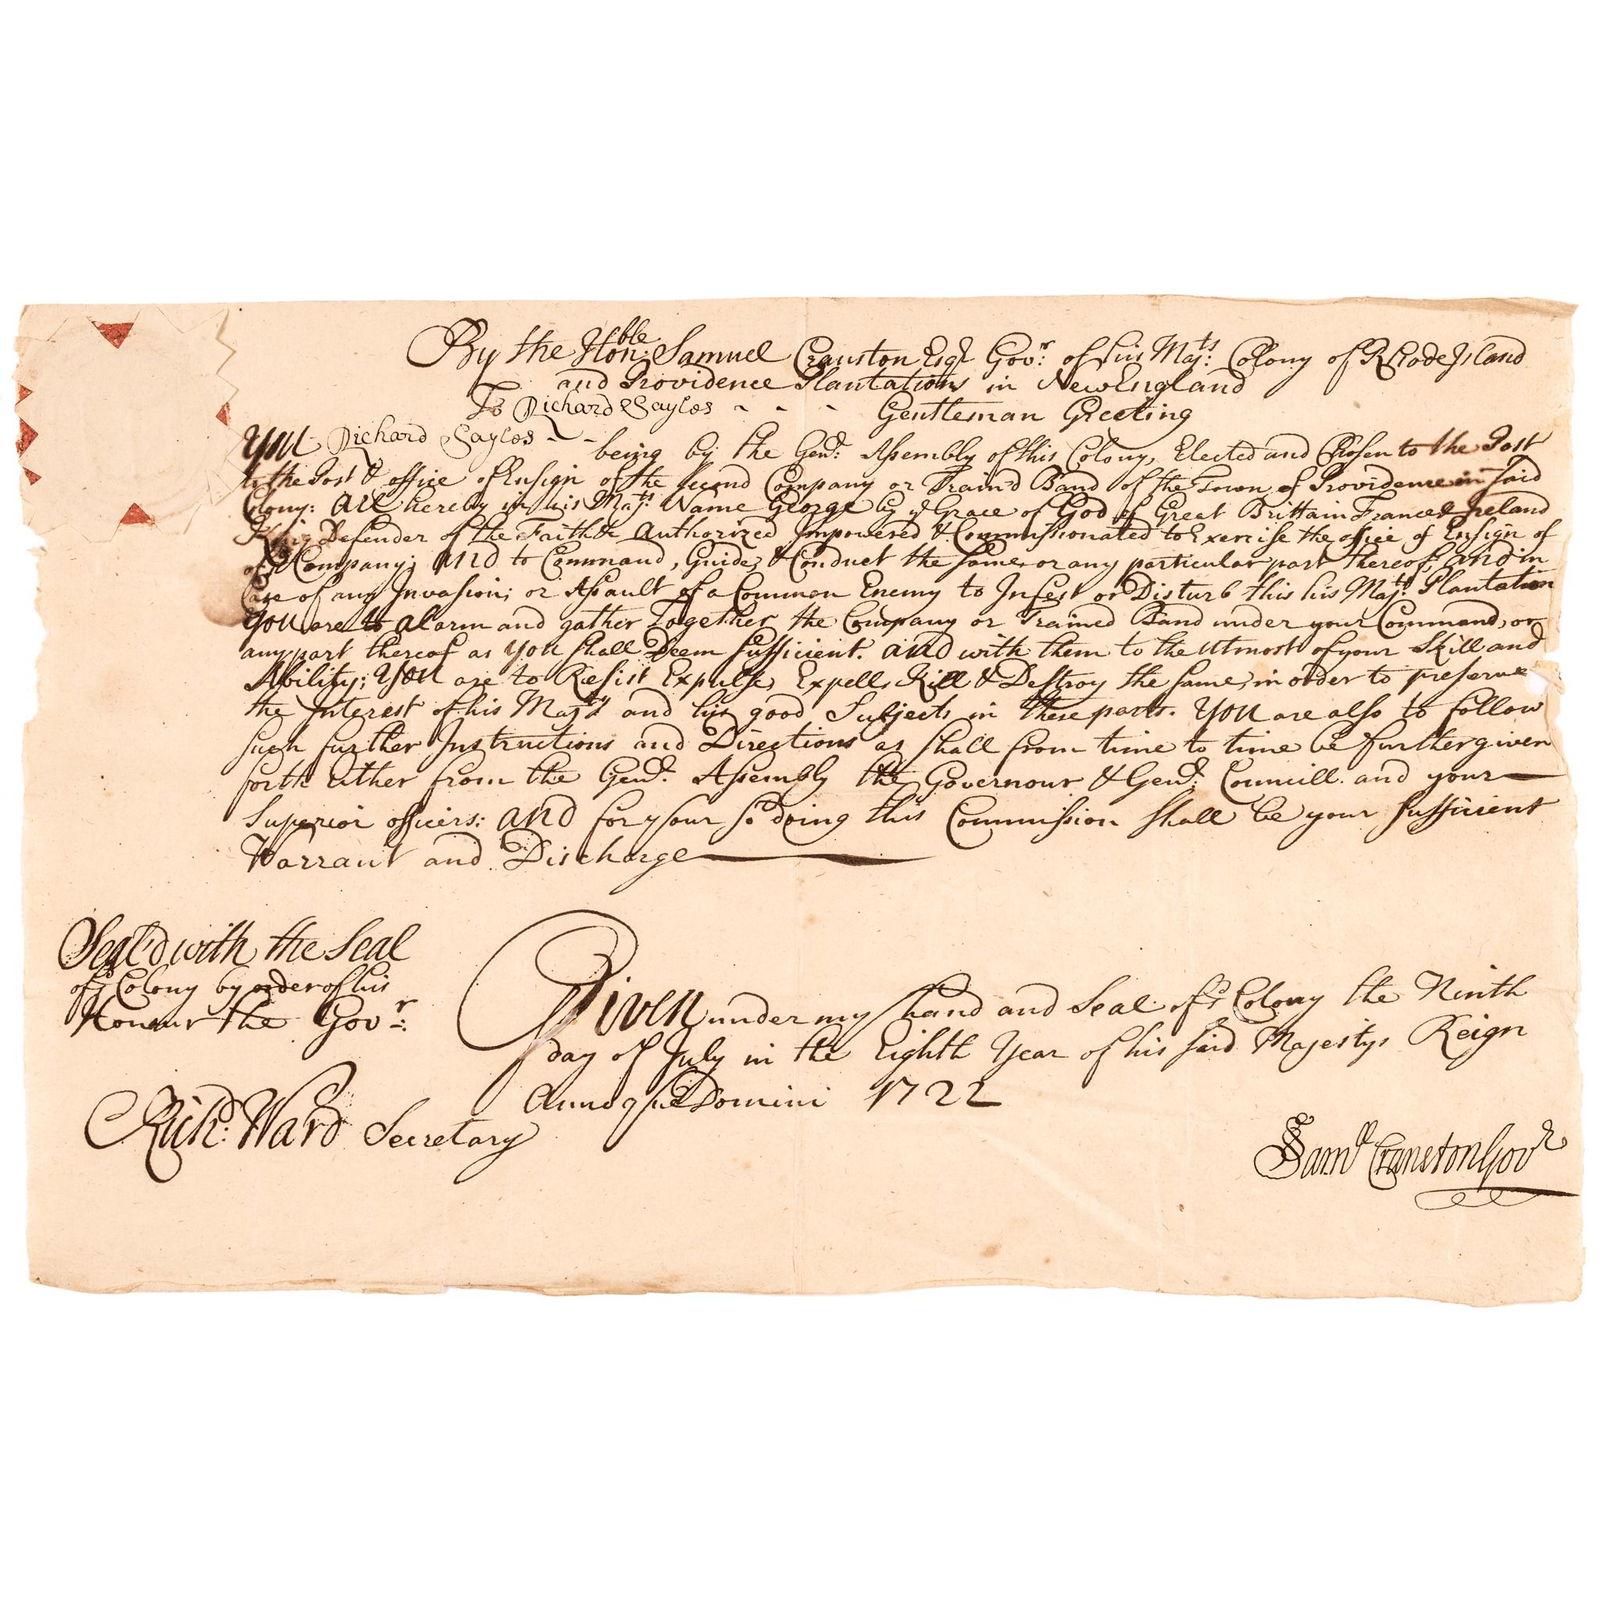 By the Honble: Samuel Cranston Esqr Govr: of his Majts: Colony of Rhode Island
and Providence Plantations in New England
To Richard Sayles - - - Gentleman Greeting
You Richard Sayles - - being by the Genll: Assembly of this Colony, Elected and Chosen to the Post
to the Post & office of Ensign of the Second Company or Train'd Band of the Town of Providence in said
Colony: Are hereby in his Majts: Name George by ye Grace of God of Great Brittain France & Ireland
King Defender of the Faith & Authorized Impowered & Commissionated to Exercise the office of Ensign of
of sd Company; And to Command, Guide, & Conduct the same, or any particular part thereof, And in
Case of any Invasion; or Assault of a Common Enemy to Infest or Disturb this his Majts: Plantation
You are to alarm and gather Together the Company or Trained Band under your Command, or
any part thereof as You shall Deem sufficient. And with them to the utmost of your Skill and
Ability; You are to Resist Expulse, Expell, Kill & Destroy the same, in order to preserve
the Interest of his Majts and his good Subjects in these parts. You are also to follow
such further Instructions and Directions as shall from time to time be further given
forth Either from the Genll: Assembly the Governour & Genll: Councill. and your
Superior officers: And for your so doing this Commission shall be your sufficient
Warrant and Discharge
Seal'd with the Seal
of sd Colony by order of his
Honour the Govr:
Given under my hand and Seal of sd Colony the Ninth
day of July in the Eighth Year of his said Majestys Reign
Annoque Domini 1722
Richd: Ward Secretary
Samll Cranston Govr